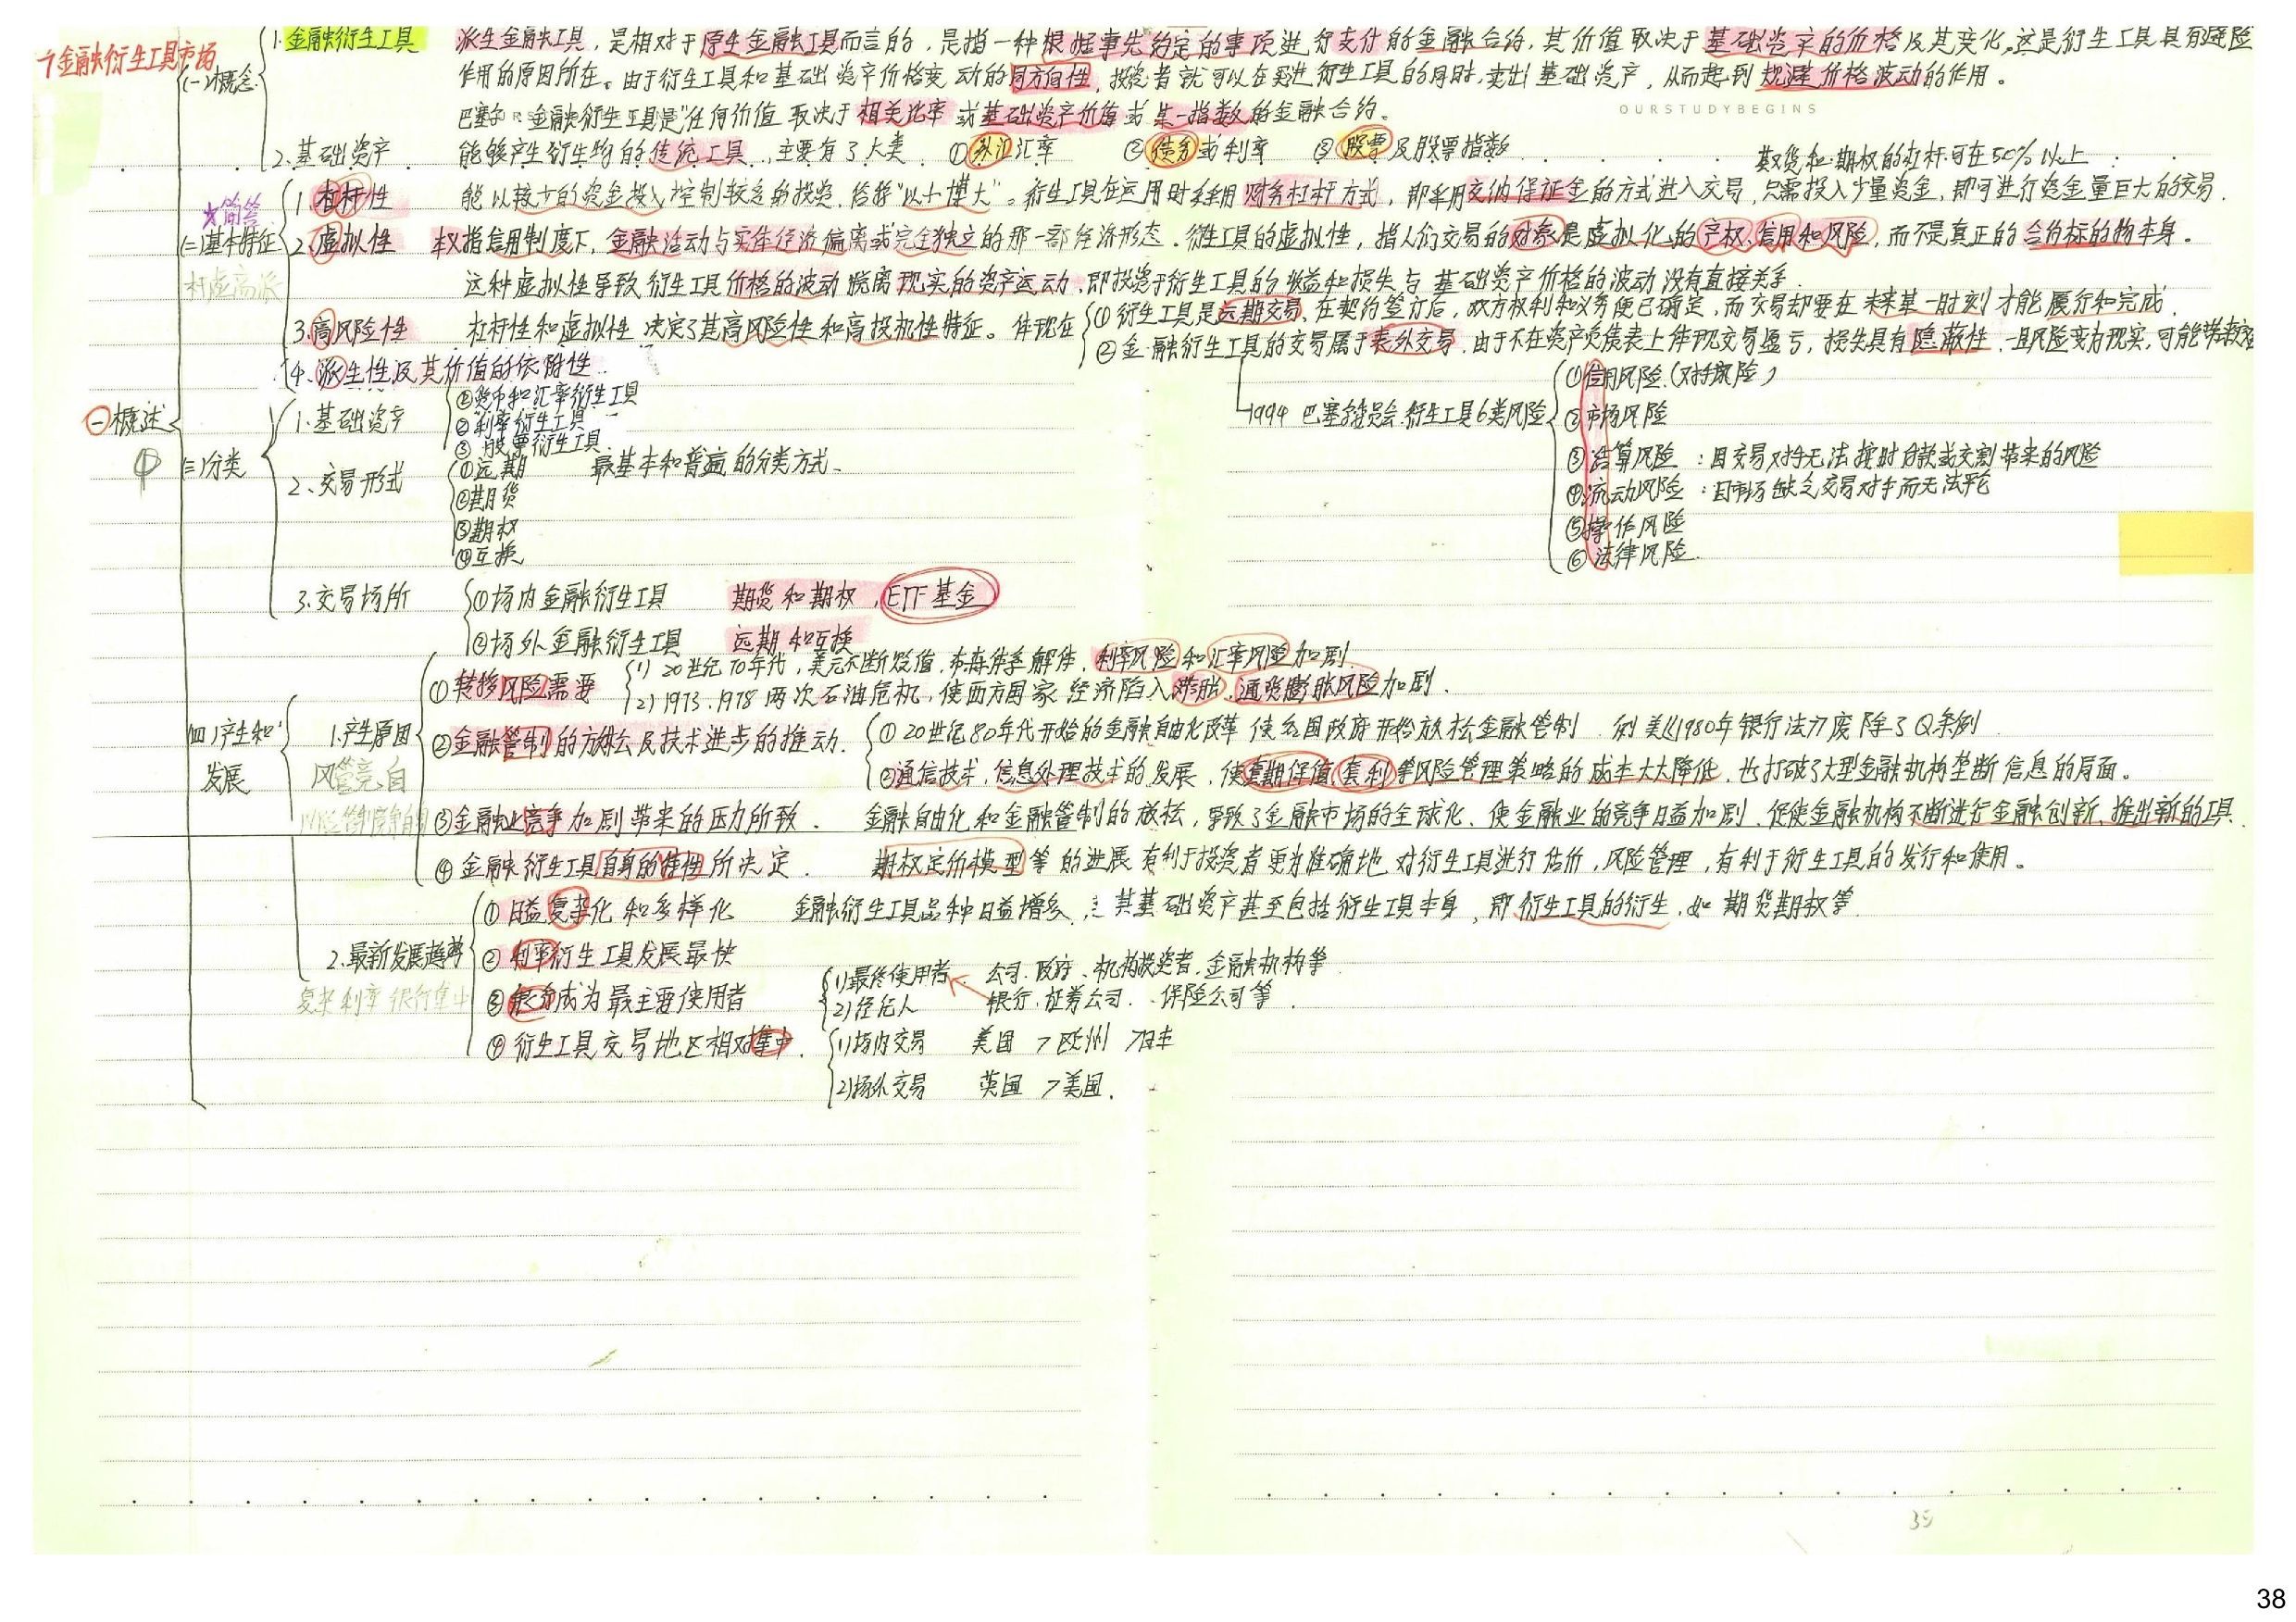 金融衍生工具市场
㊀概述
(一)概念
1.金融衍生工具 派生金融工具，是相对于原生金融工具而言的，是指一种根据事先约定的事项进行支付的金融合约，其价值取决于基础资产的价格及其变化，这是衍生工具具有避险
作用的原因所在。由于衍生工具和基础资产价格变动的同方向性，投资者就可以在买进衍生工具的同时，卖出基础资产，从而起到规避价格波动的作用。
OURSTUDYBEGINS
巴塞尔：金融衍生工具是"任何价值取决于相关比率或基础资产价值或某一指数的金融合约。
2.基础资产 能够产生衍生物的传统工具，主要有3大类 ①外汇汇率 ②债务或利率 ③股票及股票指数
期货和期权的杠杆可在50%以上
★简答
(二)基本特征
杠虚高派
1.杠杆性 能以较少的资金投入控制较多的投资，俗称"以小博大"。衍生工具在运用时多采用财务杠杆方式，即采用交纳保证金的方式进入交易，只需投入少量资金，即可进行资金量巨大的交易.
2.虚拟性 权指信用制度下，金融活动与实体经济偏离或完全独立的那一部经济形态。衍生工具的虚拟性，指人们交易的对象是虚拟化的产权、信用和风险，而不是真正的合约标的物本身。
这种虚拟性导致衍生工具价格的波动脱离现实的资产运动，即投资于衍生工具的收益和损失与基础资产价格的波动没有直接关系.
3.高风险性 杠杆性和虚拟性决定了其高风险性和高投机性特征。体现在
①衍生工具是远期交易，在契约签订后，双方权利和义务便已确定，而交易却要在未来某一时刻才能履行和完成.
②金融衍生工具的交易属于表外交易，由于不在资产负债表上体现交易盈亏，损失具有隐蔽性，一旦风险变为现实，可能带来
4.派生性及其价值的依附性.
1994 巴塞尔委员会.衍生工具6类风险
①信用风险(对手风险)
②市场风险
③结算风险：因交易对手无法按时付款或交割带来的风险
④流动风险：因市场缺乏交易对手而无法平仓
⑤操作风险
⑥法律风险.
(三)分类
1.基础资产
①货币和汇率衍生工具
②利率衍生工具
③股票衍生工具
2.交易形式
①远期 最基本和普遍的分类方式.
②期货
③期权
④互换
3.交易场所
①场内金融衍生工具 期货和期权，ETF基金
②场外金融衍生工具 远期和互换
(四)产生和发展
1.产生原因
风管竞自
①转移风险需要
1)20世纪70年代，美元不断贬值，布森体系解体，利率风险和汇率风险加剧.
2)1973、1978两次石油危机，使西方国家经济陷入滞胀，通货膨胀风险加剧.
②金融管制的放松及技术进步的推动.
①20世纪80年代开始的金融自由化改革使各国政府开始放松金融管制 例美《1980年银行法》废除了Q条例
②通信技术、信息处理技术的发展，使套期保值、套利等风险管理策略的成本大大降低，也打破了大型金融机构垄断信息的局面。
③金融业竞争加剧带来的压力所致. 金融自由化和金融管制的放松，导致了金融市场的全球化，使金融业的竞争日益加剧，促使金融机构不断进行金融创新，推出新的工具.
④金融衍生工具自身的特性所决定. 期权定价模型等的进展有利于投资者更为准确地对衍生工具进行估价，风险管理，有利于衍生工具的发行和使用。
2.最新发展趋势
复杂利率银行集中
①日益复杂化和多样化 金融衍生工具品种日益增多，其基础资产甚至包括衍生工具本身，即衍生工具的衍生，如期货期权等.
②利率衍生工具发展最快
③银行成为最主要使用者
1)最终使用者 公司、政府、机构投资者、金融机构等
2)经纪人 银行、证券公司、保险公司等.
④衍生工具交易地区相对集中.
1)场内交易 美国>欧州>日本
2)场外交易 英国>美国.
35
38